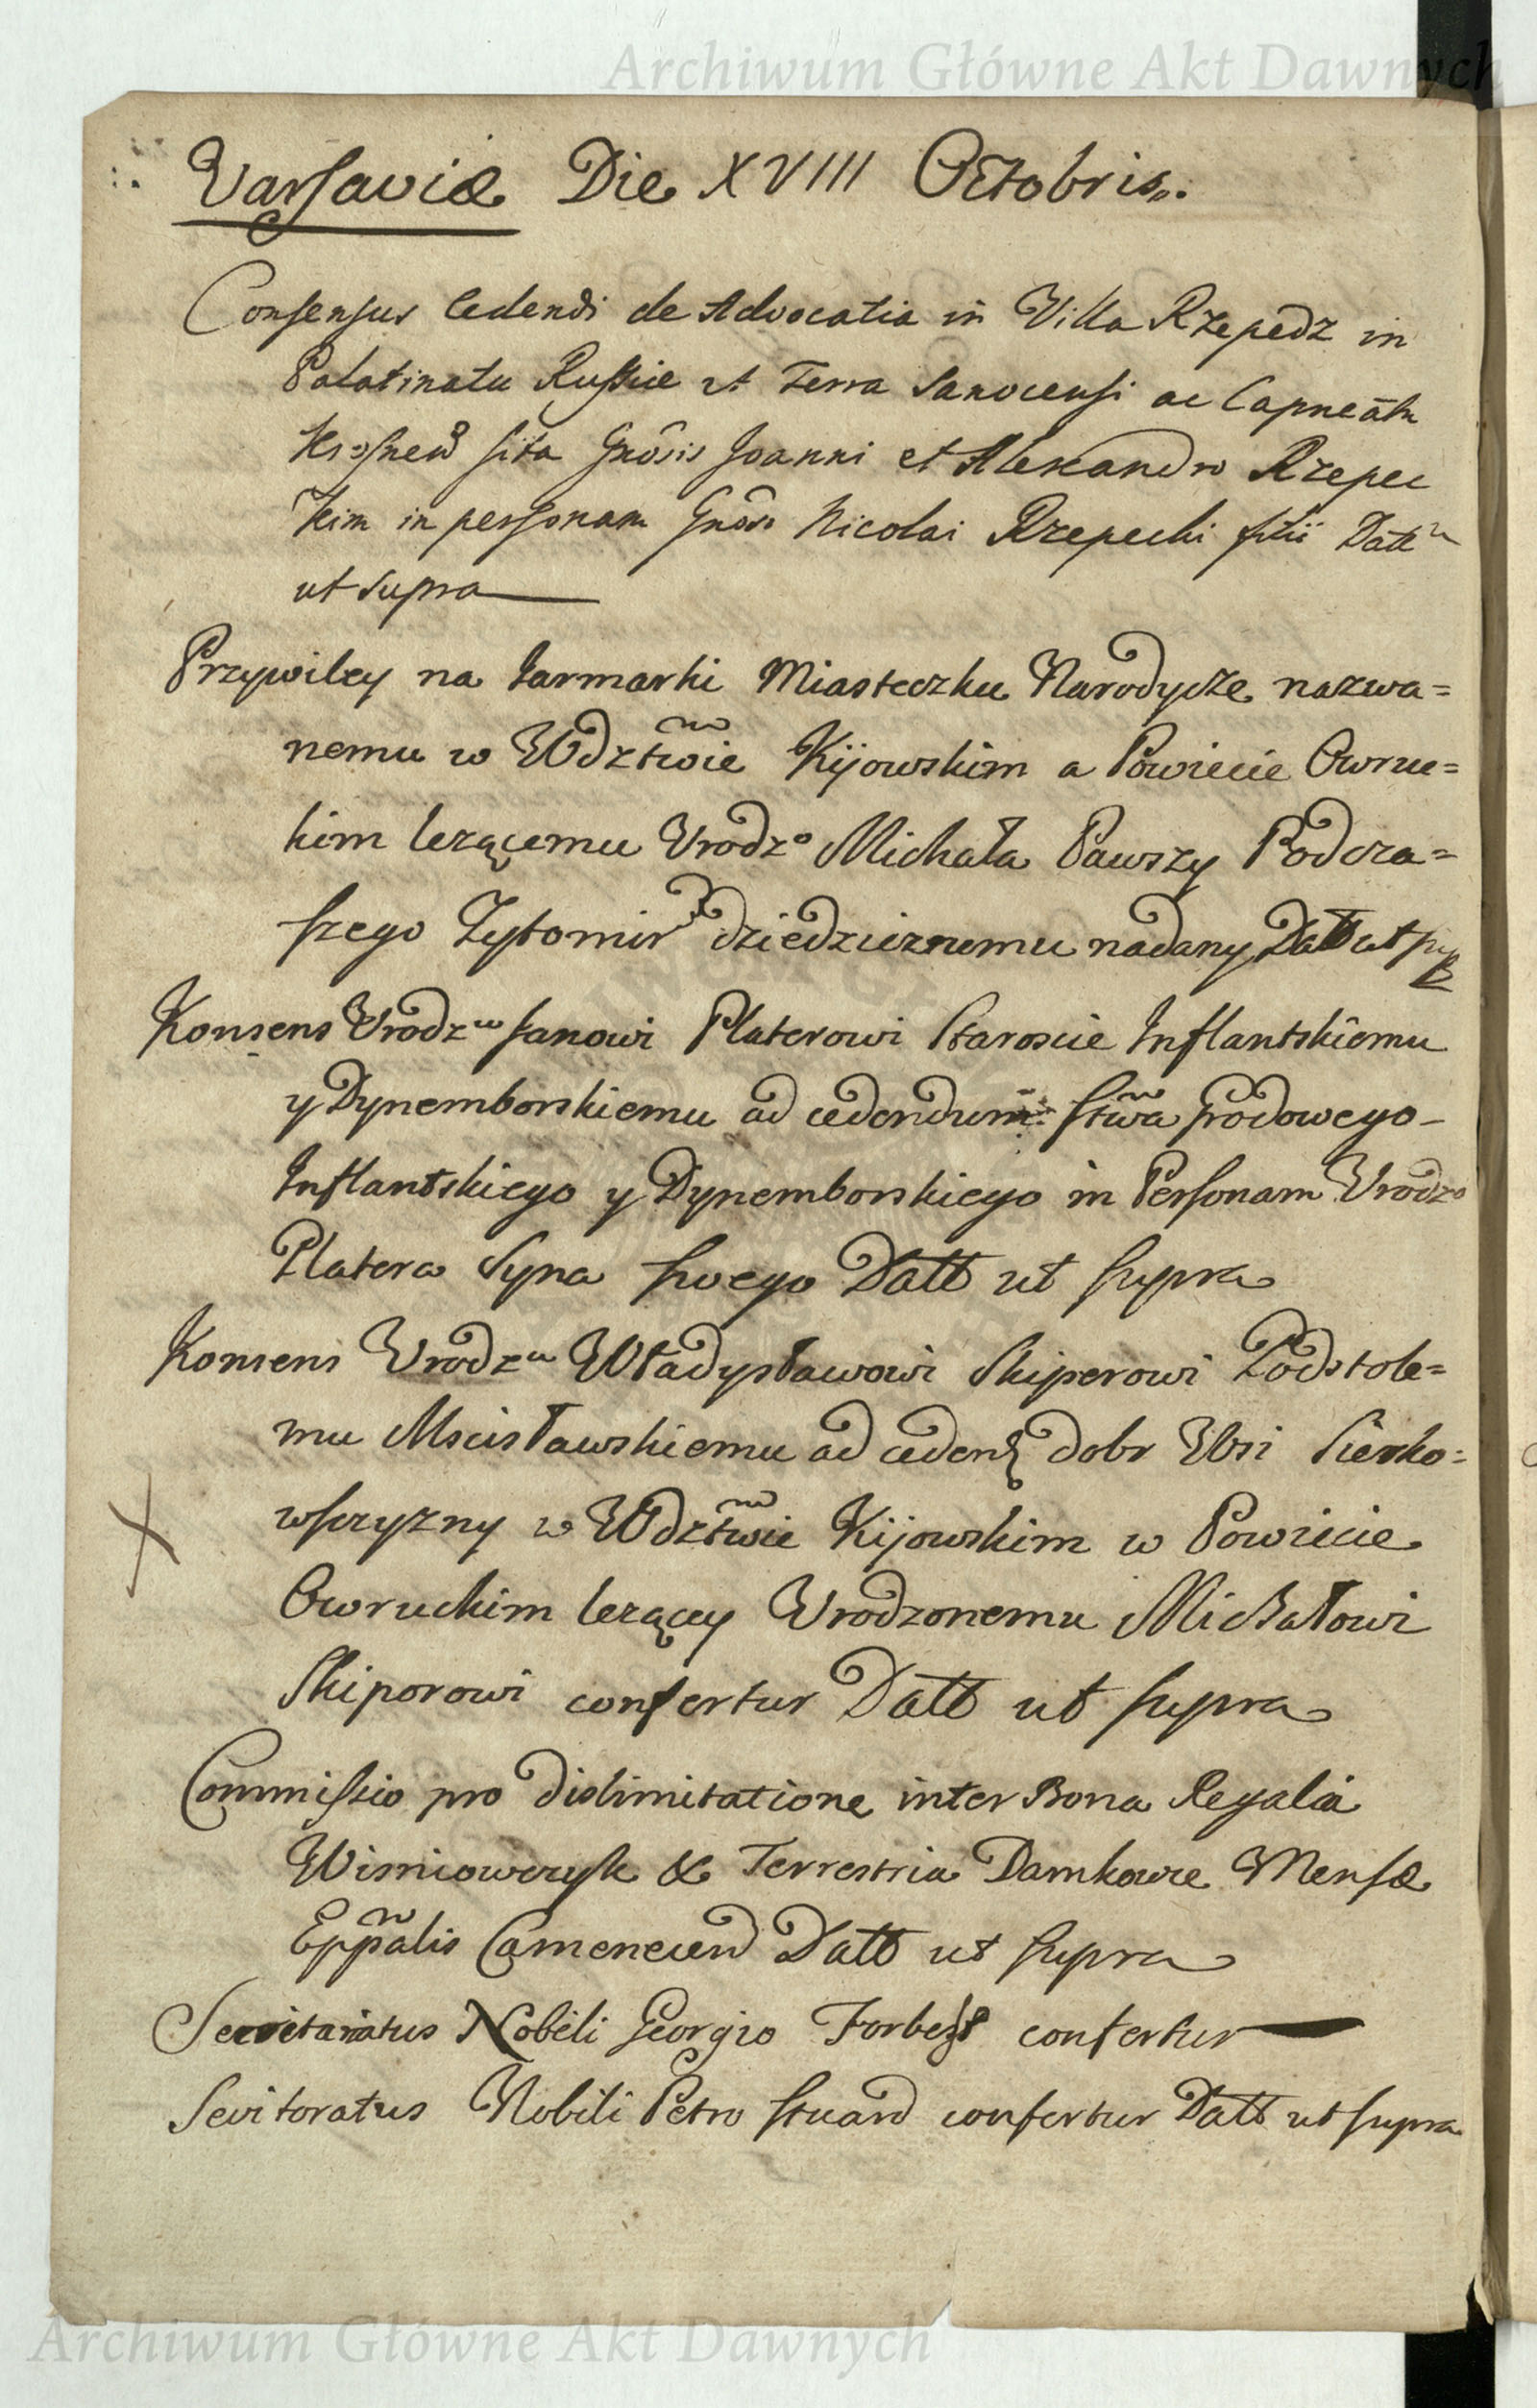 Archiwum Główne Akt Dawnych
Varsaviæ Die XVIII Octobris.
Consensus cedendi de Advocatia in Villa Rzepedz in
Palatinatu Russiæ et Terra Sanocensi ac Capneatu
sita Gnosis Joanni et Alexandro Rzepec
kim in personam Gnosi Nicolai Rzepecki filii Datt
ut supra
Przywiley na Iarmarki Miasteczku Narodycze nazwa=
nemu w Wdztwie Kijowskim a Powiecie Owruc=
kim lezącemu Urodzo Michała Pawszy Podcza=
szego Zytomir dziedzicznemu nadany Datt ut supra
Konsens Urodzu Janowi Platerowi Staroscie Inflantskiemu
y Dynemborskiemu ad cedendum Stwa grodowego
Inflantskiego y Dynemborskiego in Personam Urodzo
Platera Syna swego Datt ut supra
Konsens Urodzu Władysławowi Skiperowi Podstole=
mu Mscisławskiemu ad cedend dobr Wsi Sierko=
wszczyzny w Wdztwie Kijowskim w Powiecie
Owruckim lezącey Urodzonemu Michałowi
Skiporowi confertur Datt ut supra
Commissio pro dislimitatione inter Bona Regalia
Wisniowczyk & Terrestria Damkowce Mensæ
Eppalis Camenecen Datt ut supra
Secretariatus Nobili Georgio Forbess confertur
Sevitoratus Nobili Petro Stuard confertur Datt ut supra
Archiwum Główne Akt Dawnych